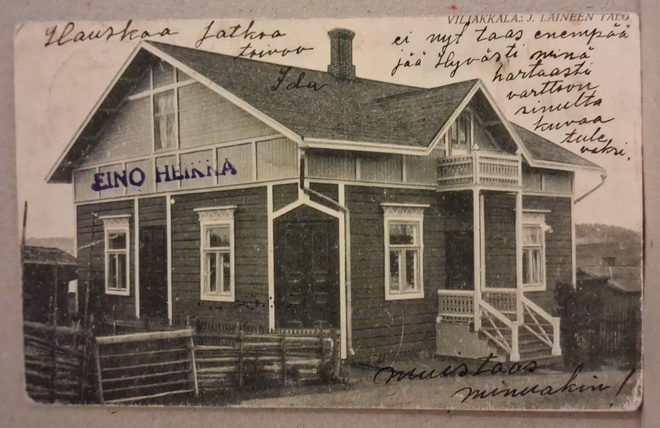 VILJAKKALA: J. LAINEEN TALO
Hauskaa Jatkoa
toivoo
Ida
ei nyt taas enempää
jää Hyvästi minä
hartaasti
varttoon
sinulta
kuvaa
tule
EINO HEIKKA
muistaos
minuakin!